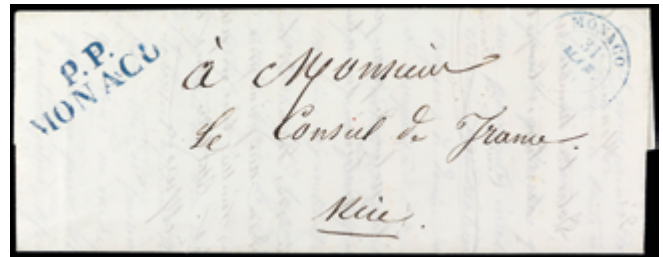 P.P.
MONACO
MONACO
31
à Monsieur
Le Consul de France.
Nice.